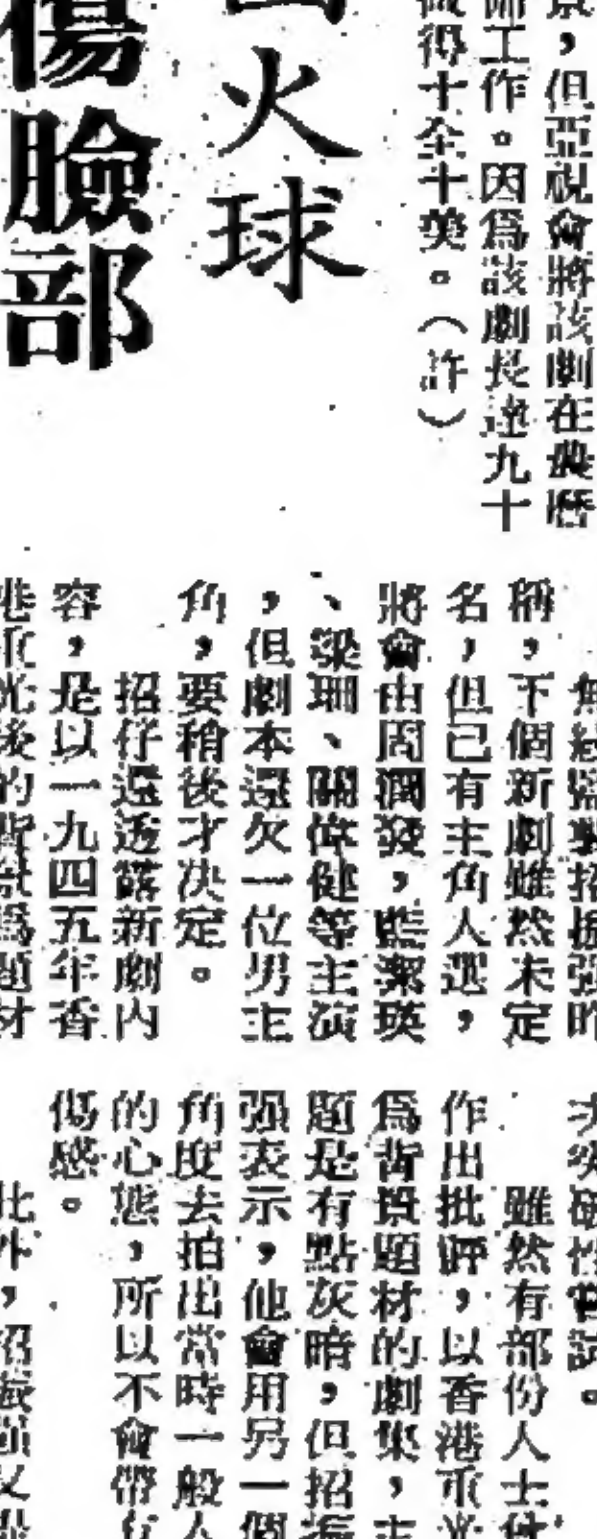 景，但亞視會將該劇在農曆
工作。因爲該劇長達九十
得十全十美。（許）
火球
傷臉部
無綫監製招振强昨
稱，下個新劇雖然未定
名，但已有主角人選，
將會由周潤發，藍潔瑛
、梁珊、關偉健等主演
，但劇本還欠一位男主
角，要稍後才決定。
招仔還透露新劇内
容，是以一九四五年香
港重光後的背景爲題材
次突破性嘗試。
雖然有部份人士
作出批評，以香港重光
爲背景題材的劇集，主
題是有點灰暗，但招振
强表示，他會用另一個
角度去拍出當時一般人
的心態，所以不會帶有
傷感。
此外，招振强又